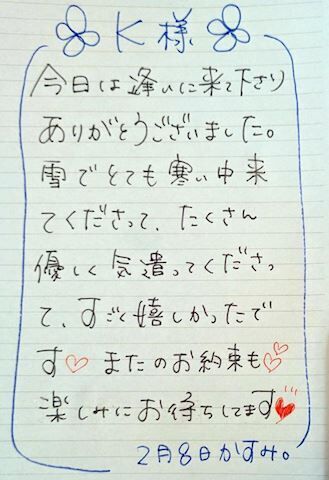 K様
今日は逢いに来て下さり
ありがとうございました。
雪でとても寒い中来
てくださって、たくさん
優しく気遣ってくださっ
て、すごく嬉しかったで
す♡ またのお約束も♡
楽しみにお待ちしてます♥
2月8日かすみ。